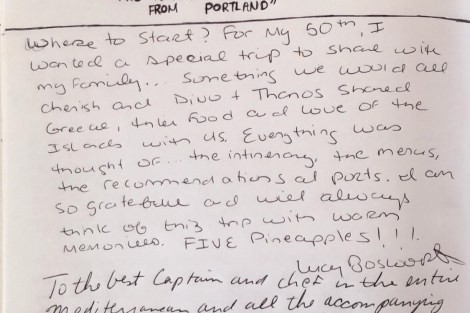 FROM PORTLAND"
Where to start? For my 50th, I
wanted a special trip to share with
my family... Something we would all
cherish and Dino + Thanos shared
Greece, their food and love of the
Islands with us. Everything was
thought of... the intinerary, the menus,
the recommendations at ports. I am
so grateful and will always
think of this trip with warm
memories. FIVE Pineapples!!!.
Lucy Bosworth
To the best Captain and chef in the entire
Mediterranean and all the accompanying